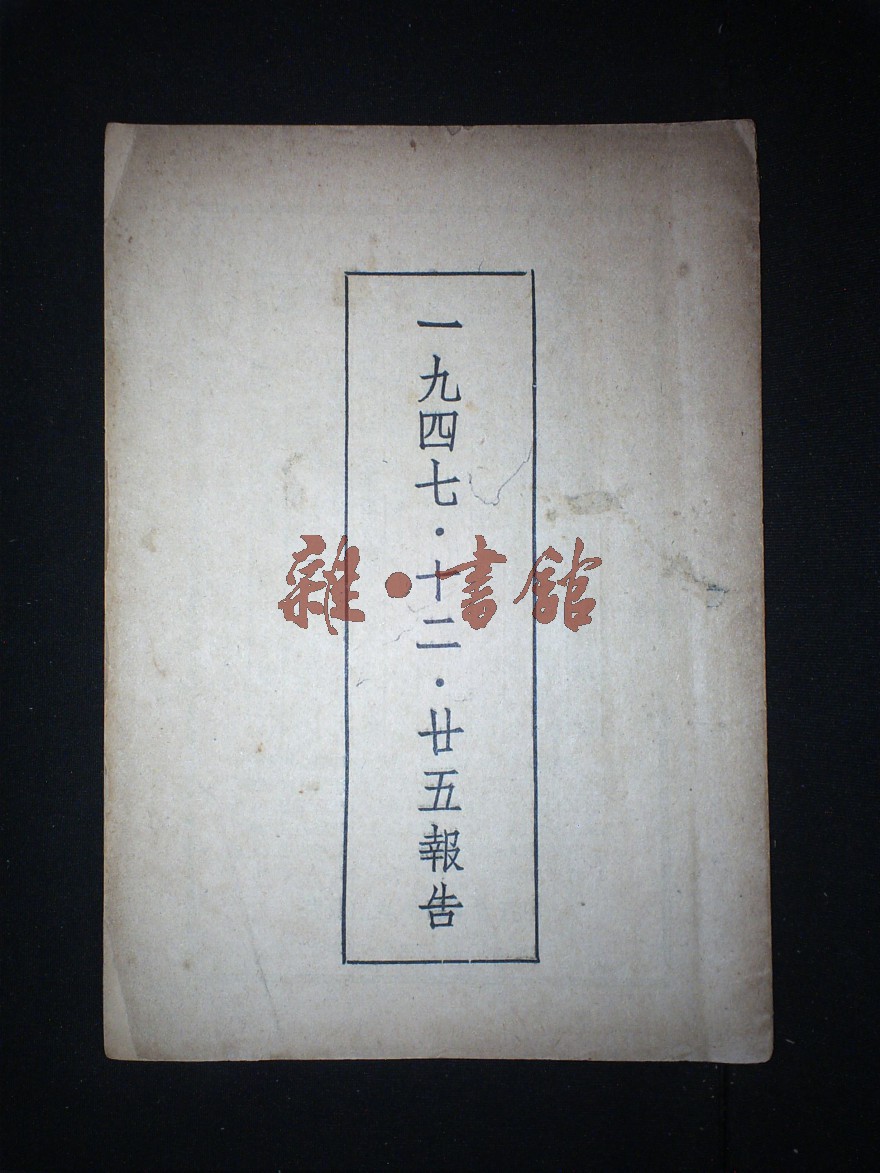 一九四七·十二·廿五報告
雜·書館